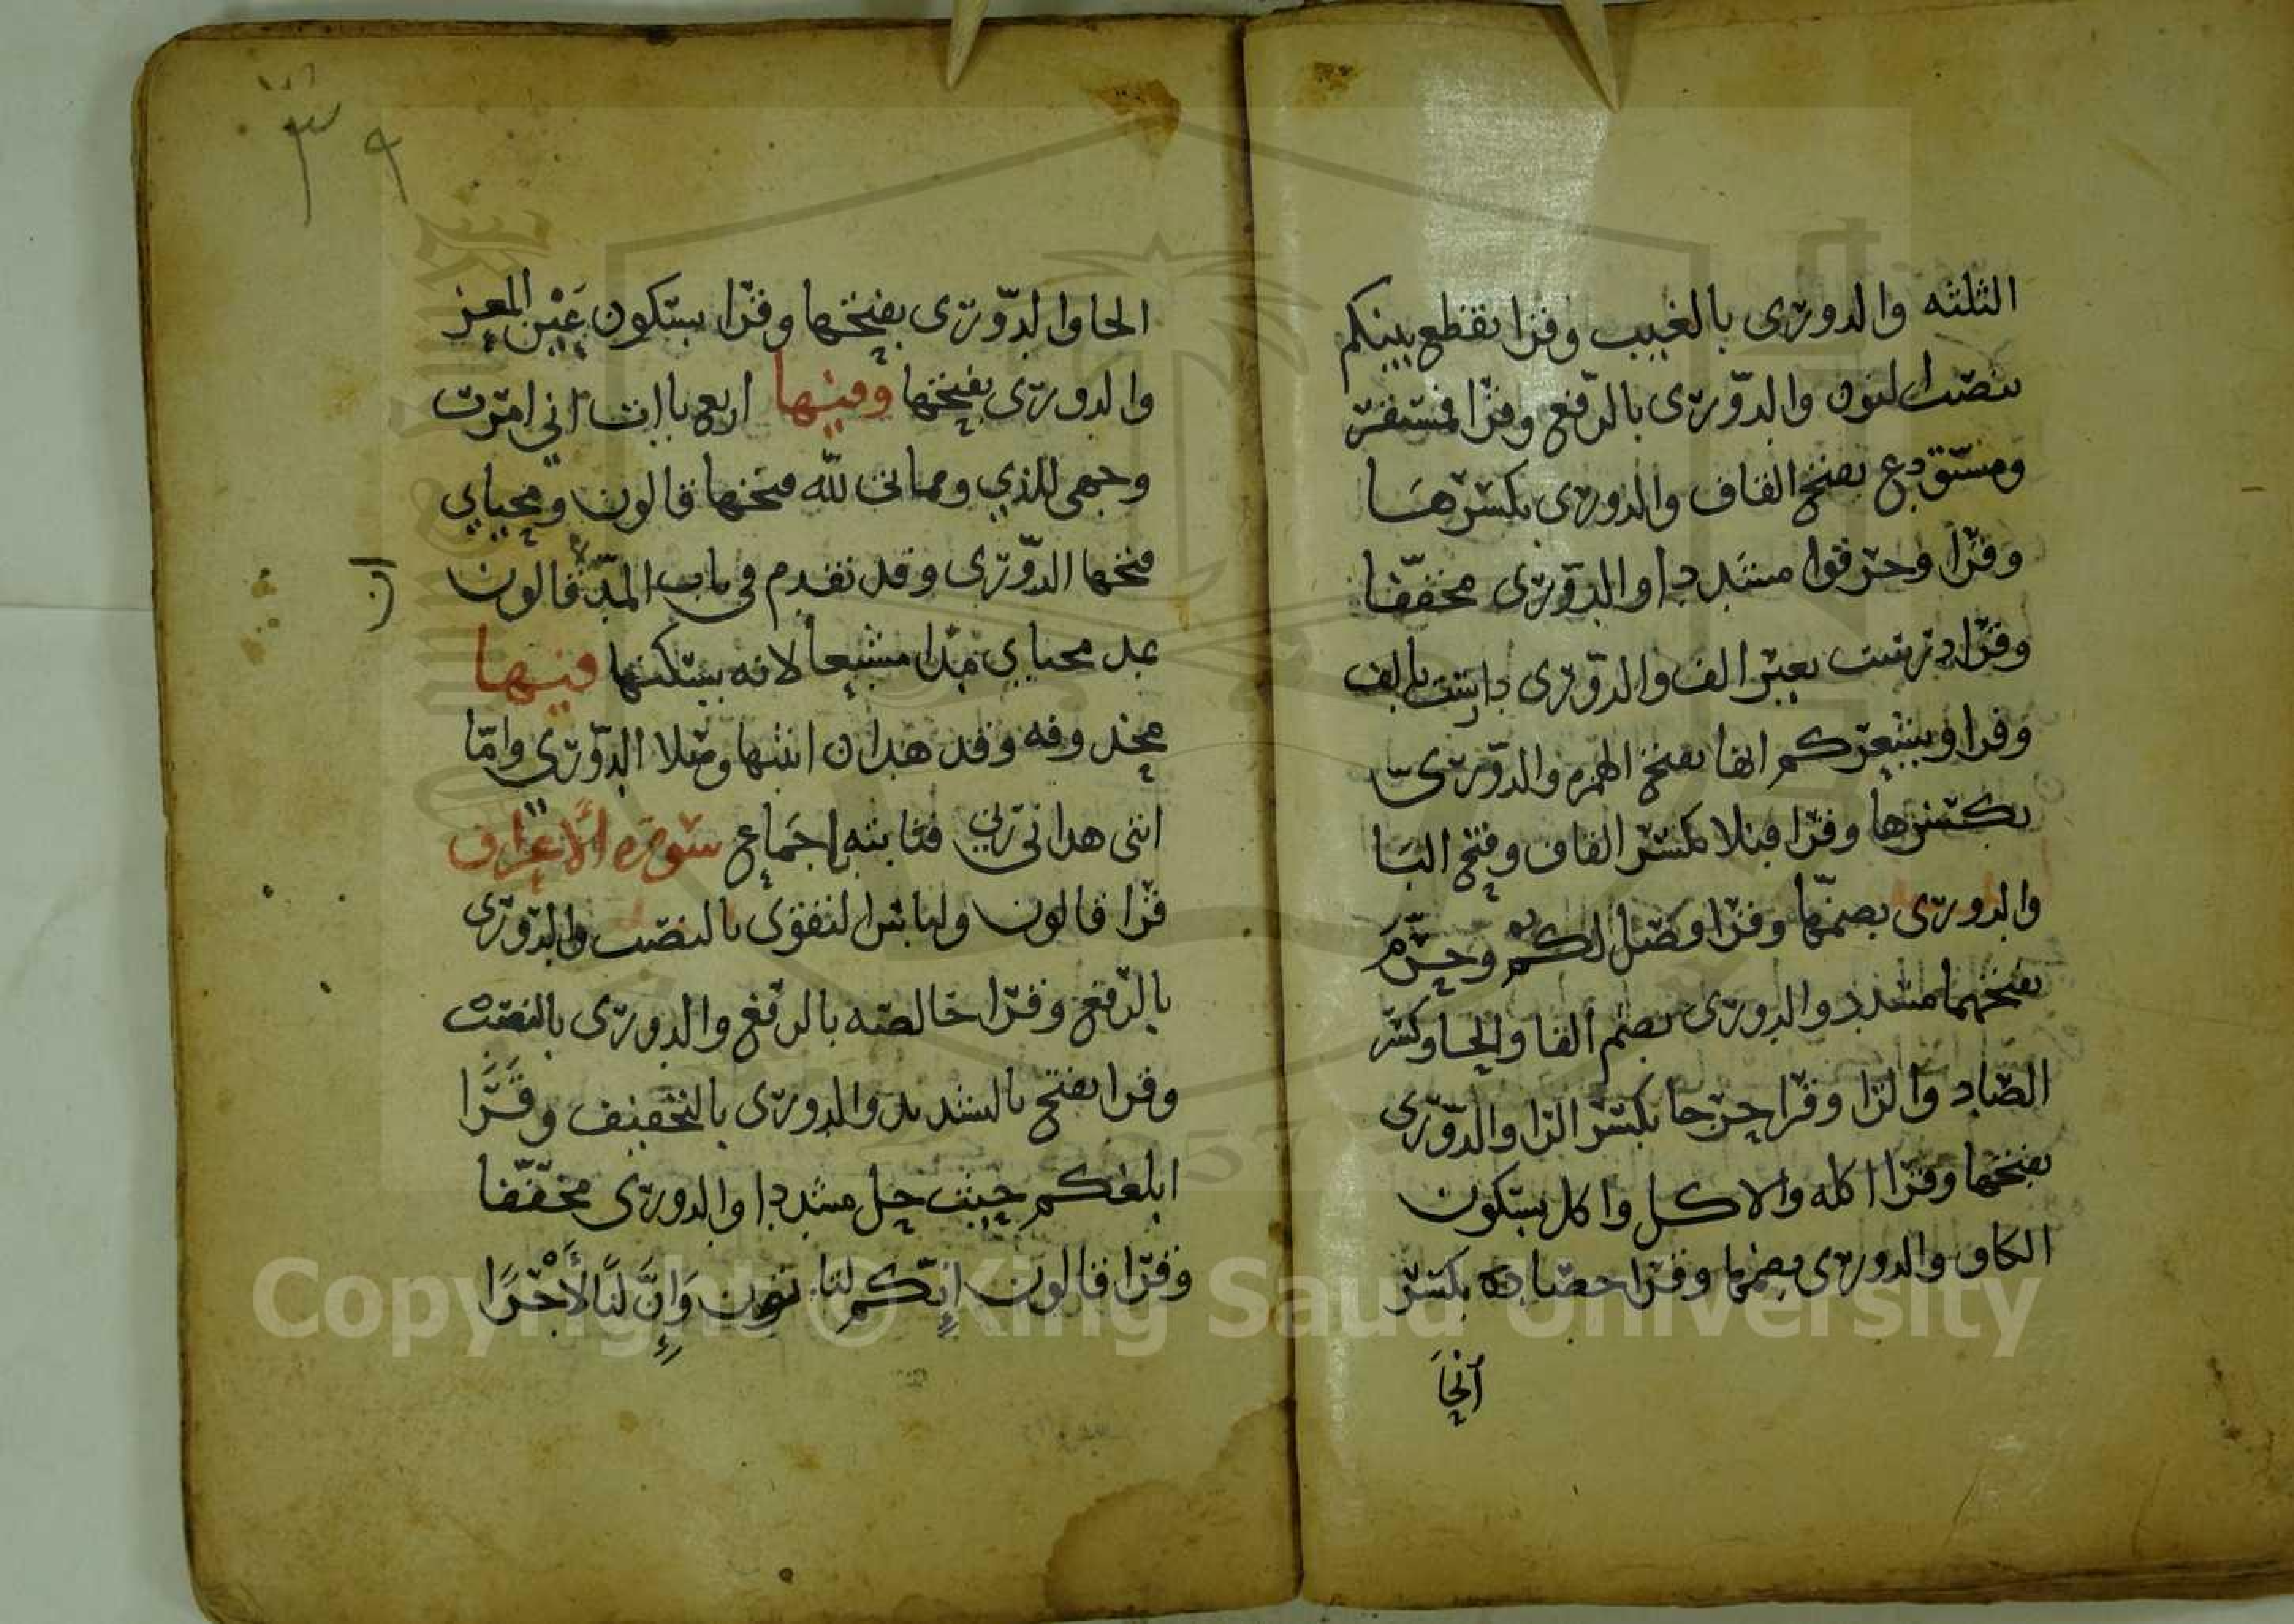 الثلثه والدورى بالغيب وقرا تقطع بينكم
بنصب النون والدّورى بالرفع وقرا فمستقر
ومستودع بفتح القاف والدورى بكسرها
وقرا وخرقوا مشددا والدّورى مخففّا
وقرا درست بغير الف والدّورى دارست بالف
وقرا ويشعركم انها بفتح الهمزه والدّورى
بكسرها وقرا قبلا بكسر القاف وفتح البا
والدورى بضمّها وقرا وفصل لكم وحرّم
بفتحهما مشدد والدورى بضم الفا والحا وكسر
الصاد والرا وقرا حرجا بكسر الرا والدّورى
بفتحها وقرا اكله والاكل واكل بسكون
الكاف والدورى بضمها وقرا حصاده بكسر
الحا
٣٩
الحا والدّورى بفتحها وقرا بسكون عَيْن المعز
والدورى بفتحها وفيها اربع ياات اني امرت
وجهى للذي ومماتى لله فتحها قالون ومحياي
فتحها الدّورى وقد تقدم فى باب المدّ قالون
يمد محياي مدا مشبعا لانه يسكنها فيها
محذوفه وقد هدان اثبتها وصلا الدّورى وامّا
اننى هدانى ربي فثابته اجماع سورة الأعراف
قرا قالون ولباس التقوى بالنصب والدّورى
بالرفع وقرا خالصه بالرفع والدورى بالنصب
وقرا تفتح بالتشديد والدورى بالتخفيف وقَرَّا
ابلغكم حيث حل مشددا والدورى مخففّا
وقرّا قالون إنكم لتاتون وَإِنَّ لَنَا لَأَجْرًا
Copyright © King Saud University